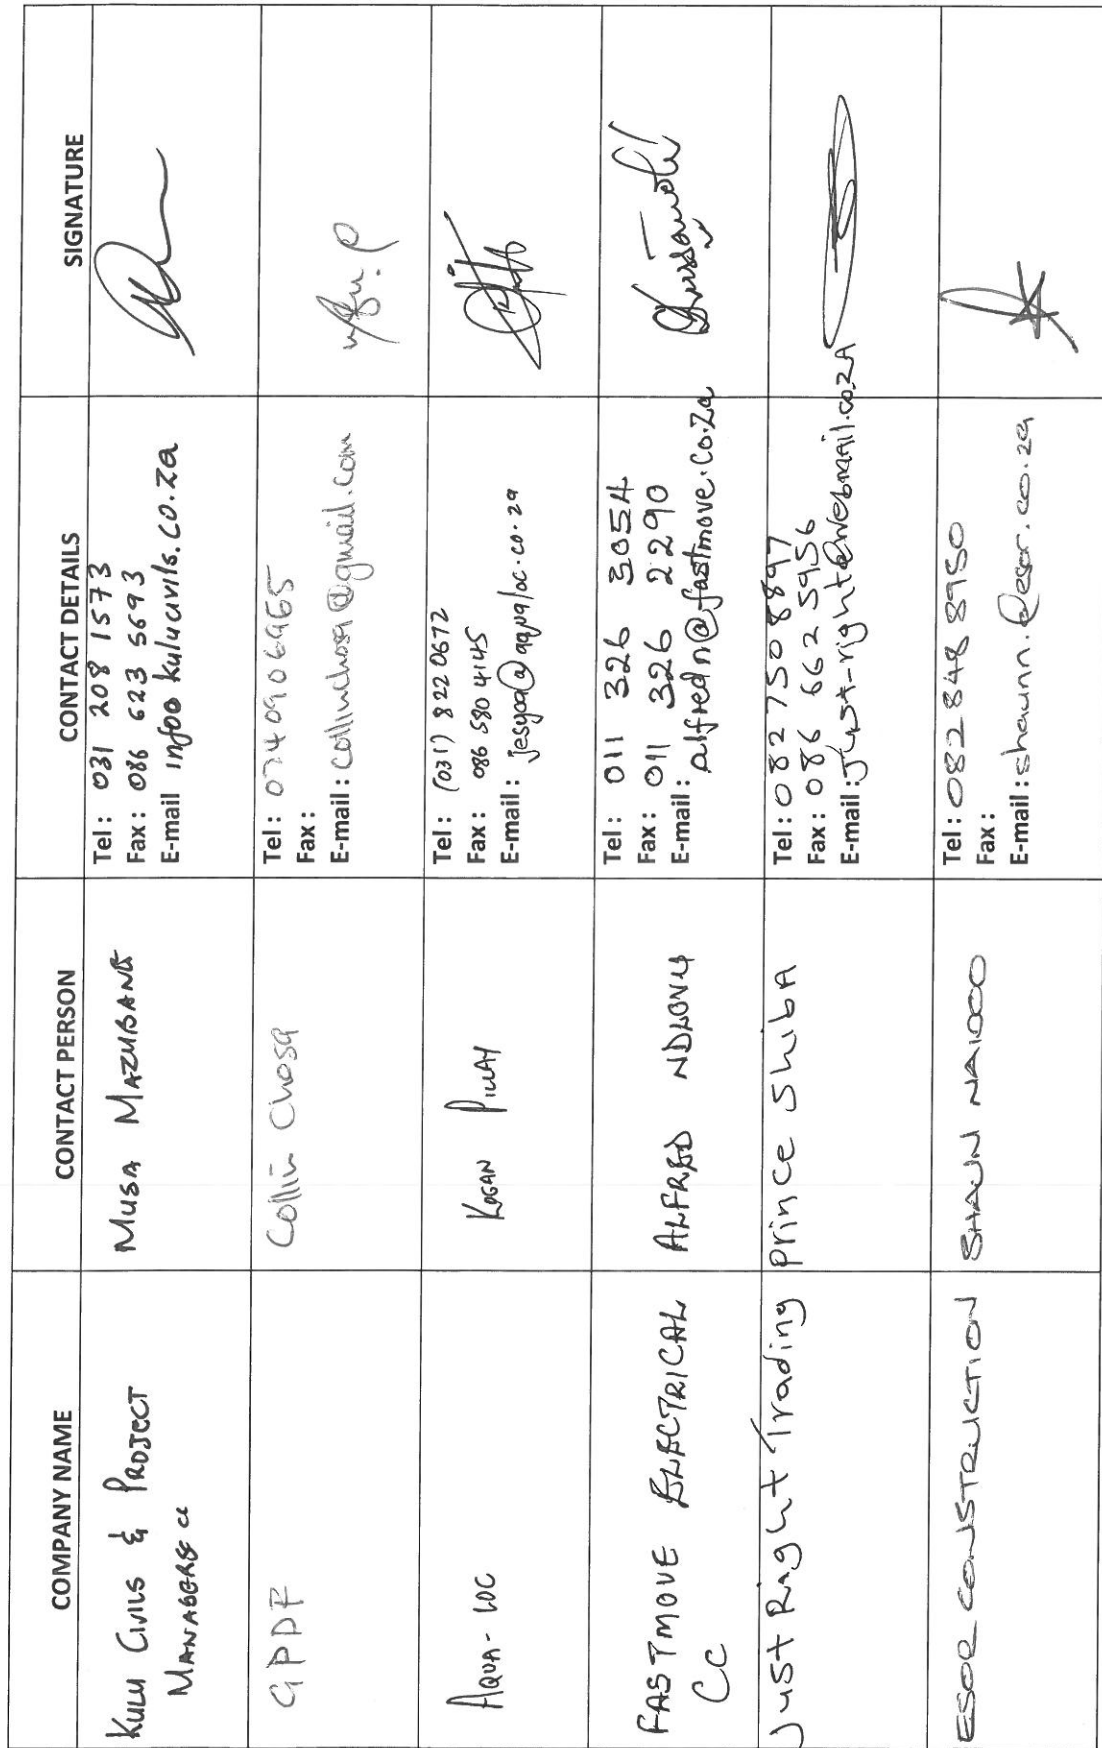 COMPANY NAME
CONTACT PERSON
CONTACT DETAILS
SIGNATURE
KULU CIVILS & PROJECT
MANAGERS cc
MUSA MAZUBANE
Tel : 031 208 1573
Fax : 086 623 5693
E-mail info@kulucivils.co.za
GPDF
Collin Chosa
Tel : 0740906965
Fax :
E-mail : collinchosa@gmail.com
AQUA-LOC
KOGAN PILLAY
Tel : (031) 822 0672
Fax : 086 580 4145
E-mail : jesyoa@aqualoc.co.za
FASTMOVE ELECTRICAL
CC
ALFRED NDLOVU
Tel : 011 326 3054
Fax : 011 326 2290
E-mail :
alfredn@fastmove.co.za
Just Right Trading
Prince ShibA
Tel : 082 750 8897
Fax : 086 662 5956
E-mail : Just-right@webmail.co.zA
ESOR CONSTRUCTION
SHAUN NAIDOO
Tel : 082 848 8950
Fax :
E-mail : shaun.n@esor.co.za